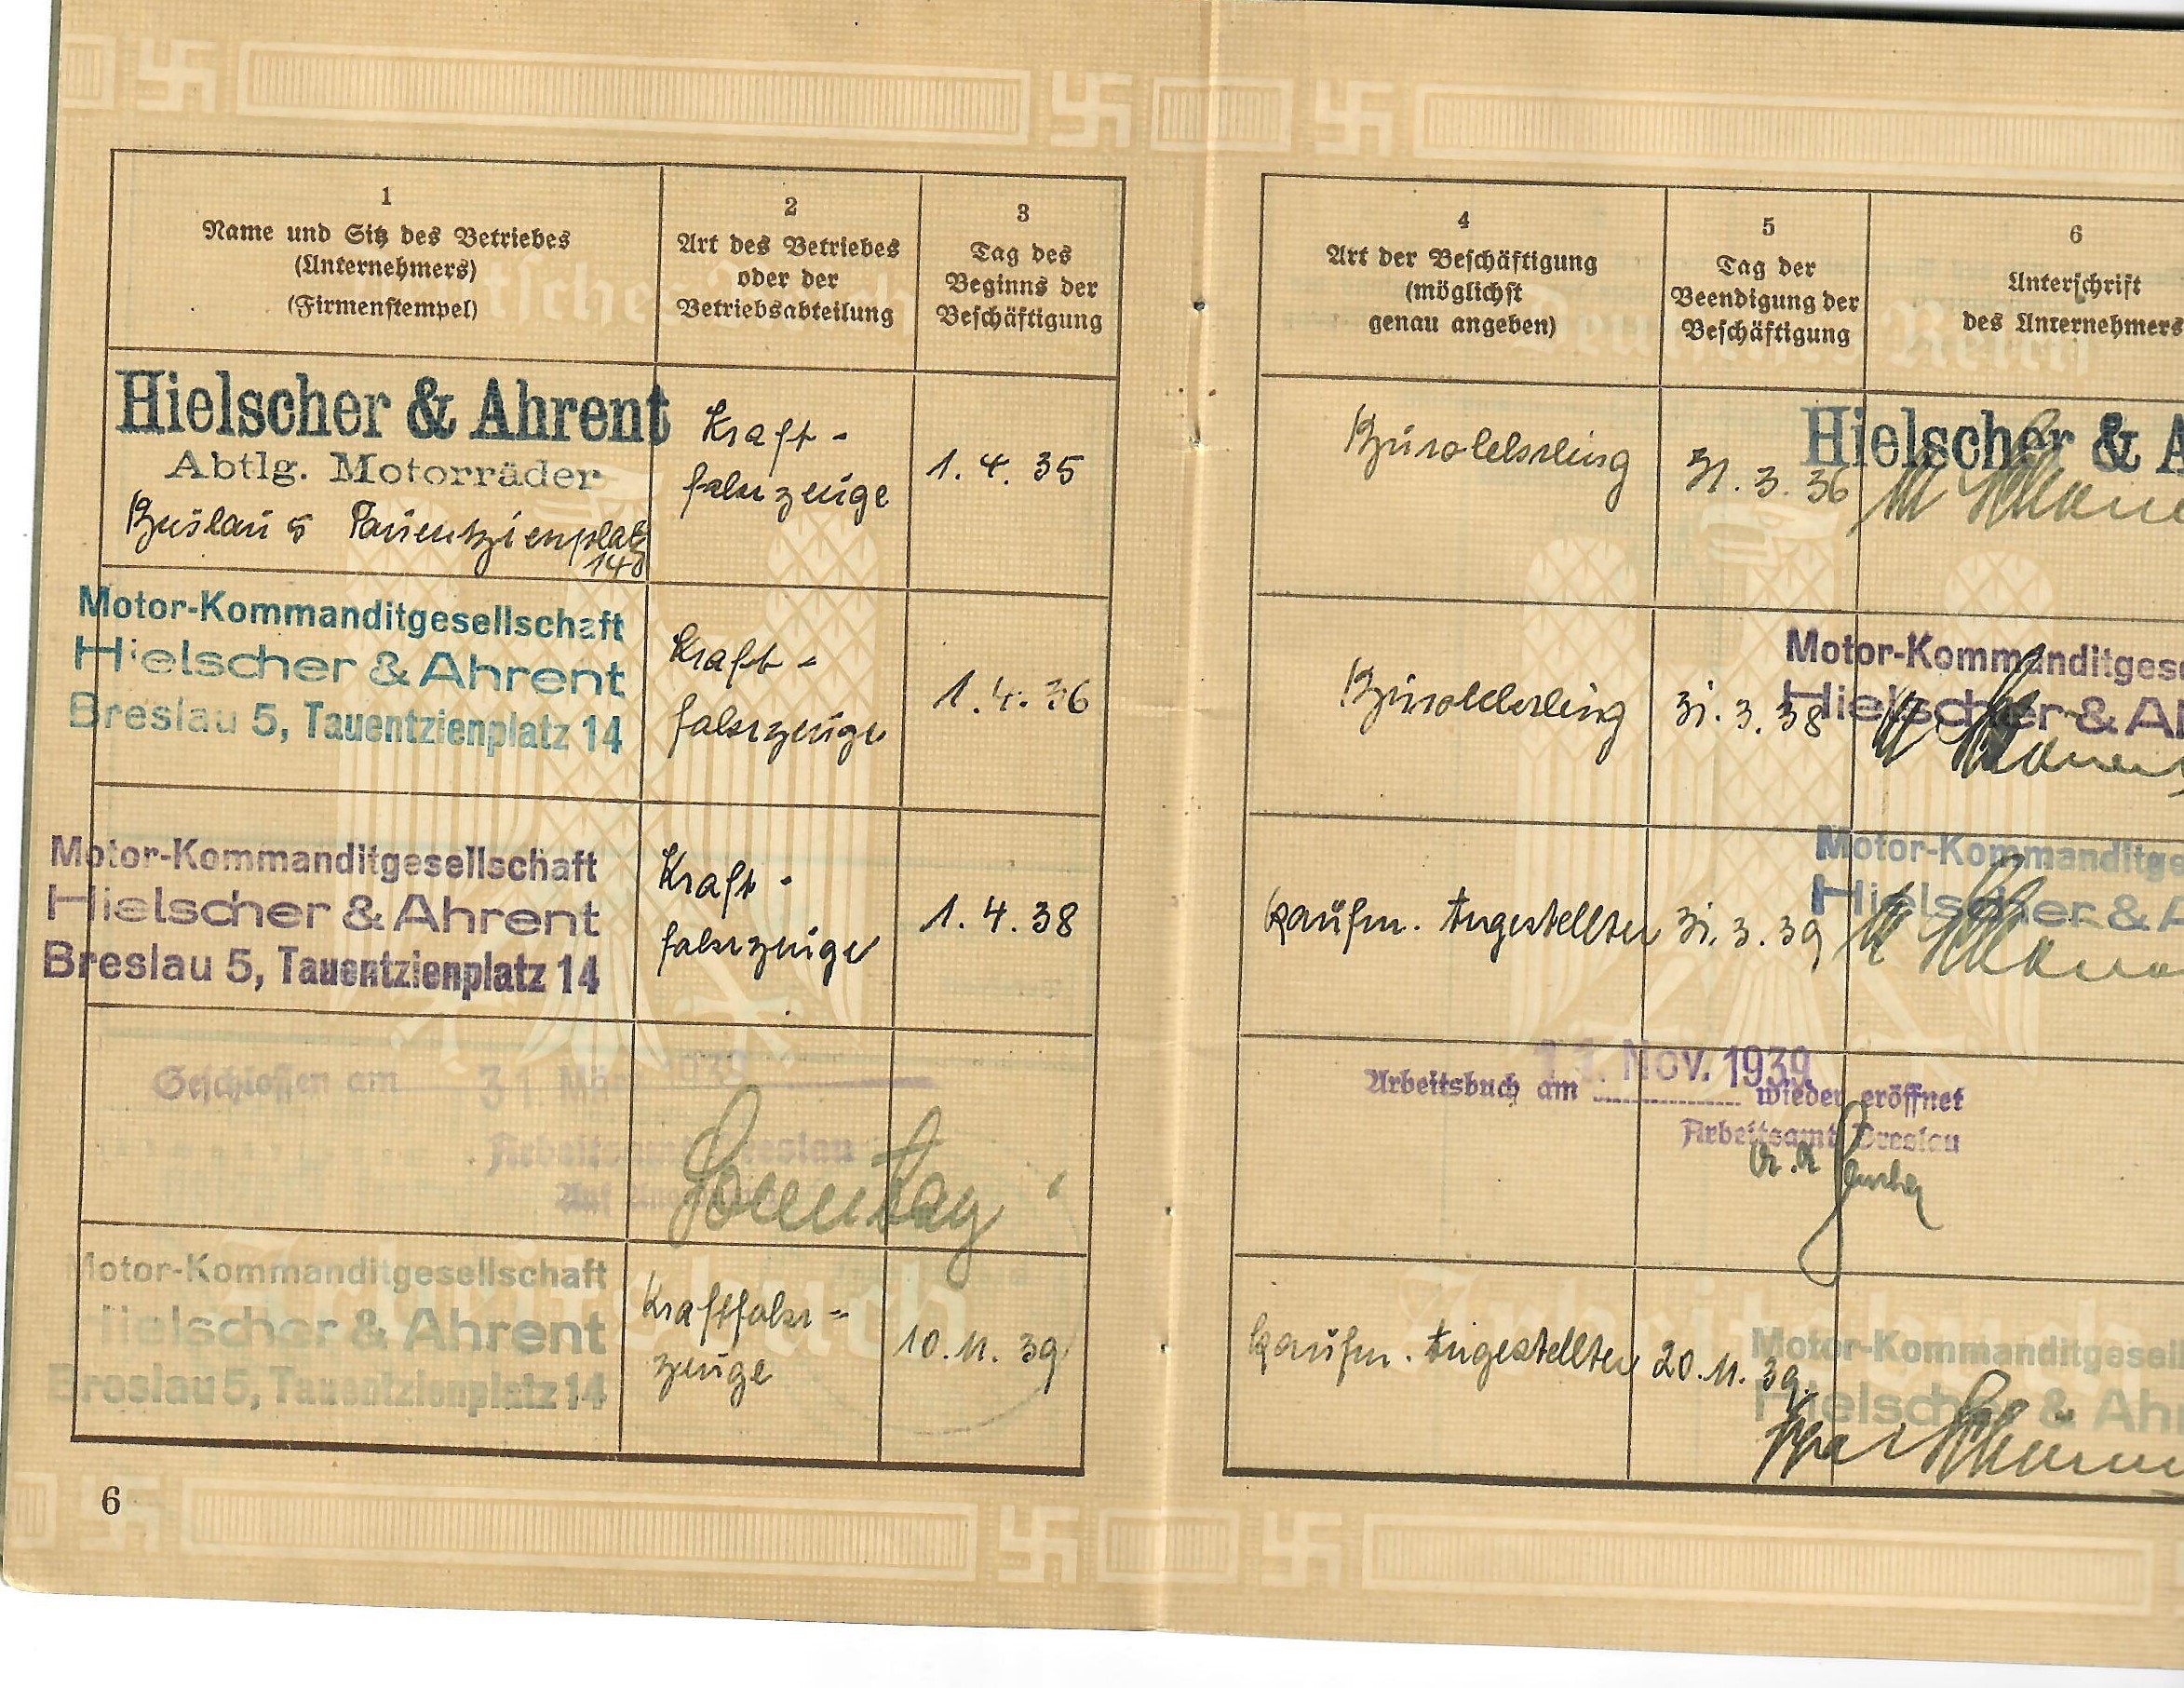 1
Name und Sitz des Betriebes
(Unternehmers)
(Firmenstempel)
2
Art des Betriebes
oder der
Betriebsabteilung
3
Tag des
Beginns der
Beschäftigung
4
Art der Beschäftigung
(möglichst
genau angeben)
5
Tag der
Beendigung der
Beschäftigung
6
Unterschrift
des Unternehmers
Hielscher & Ahrent
Abtlg. Motorräder
Breslau 5 Tauentzienplatz
14
Kraft-
fahrzeuge
1. 4. 35
Bürolehrling
31. 3. 36
Hielscher & A
Motor-Kommanditgesellschaft
Hielscher & Ahrent
Breslau 5, Tauentzienplatz 14
Kraft-
fahrzeuge
1. 4. 36
Bürolehrling
31. 3. 38
Motor-Kommanditges
Hielscher & Ah
Motor-Kommanditgesellschaft
Hielscher & Ahrent
Breslau 5, Tauentzienplatz 14
Kraft-
fahrzeuge
1. 4. 38
kaufm. Angestellter
31. 3. 39
Motor-Kommanditge
Hielscher & A
Geschlossen am 31. März 1939
Arbeitsamt Breslau
Sonntag
11. Nov. 1939
Arbeitsbuch am wieder eröffnet
Arbeitsamt Breslau
Motor-Kommanditgesellschaft
Hielscher & Ahrent
Breslau 5, Tauentzienplatz 14
Kraftfahr=
zeuge
10. 11. 39
kaufm. Angestellter
20. 11. 39.
Motor-Kommanditgesell
Hielscher & Ahr
Arbeitsbuch
6